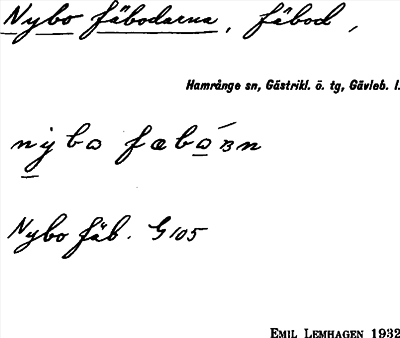 Nybo fäbodarna, fäbod,
Hamrånge sn, Gästrikl. ö. tg, Gävleb. l.
nybo fæboʙn
Nybo fäb. G105
EMIL LEMHAGEN 1932